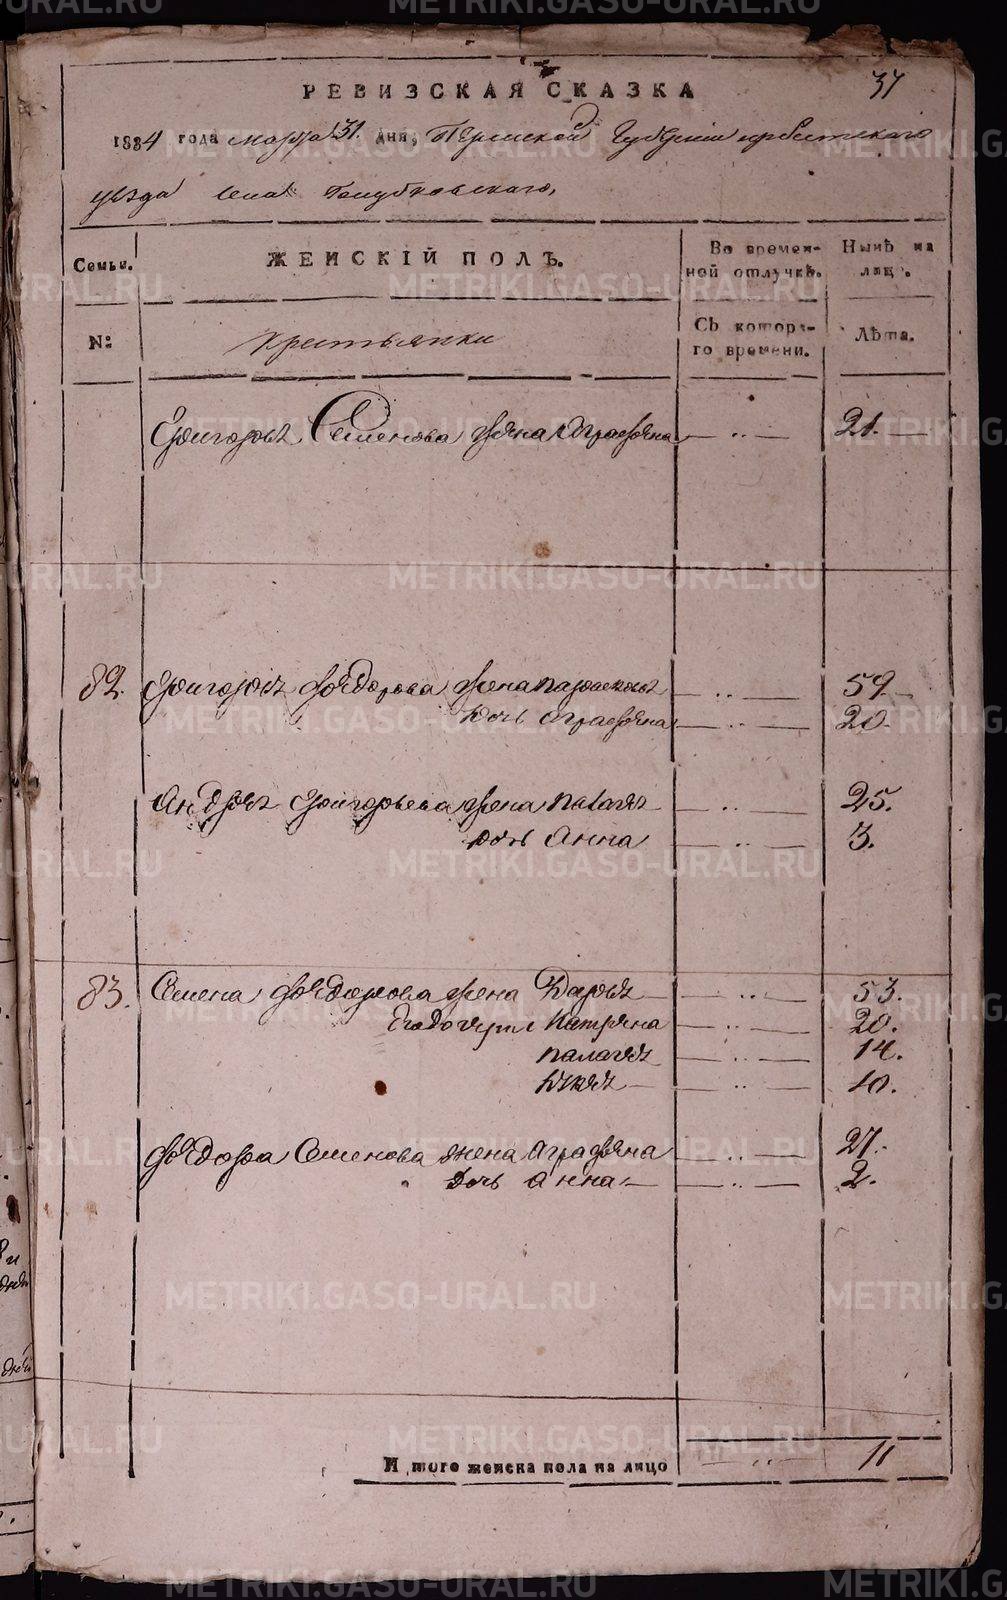 37
РЕВИЗСКАЯ СКАЗКА
1834 года марта 31 дня, Пермской Губерніи ирбитскаго
уѣзда Села Голубковскаго,
Семьи. ЖЕНСКІЙ ПОЛЪ. Во времен-ной отлучкѣ. Нынѣ на лицо.
№: Крестьянки Съ котора-го времени. Лѣта.
Григорья Семенова жена Аграфена — ·· — 21. —
82. Григорья Фёдорова жена — ·· — 59 —
дочь Аграфена — ·· — 20.
Андрея Григорьева жена — ·· — 25.
дочь Анна — ·· — 3.
83. Семена Фёдорова жена Дарья — ·· — 53.
Катерина — ·· — 20.
Палагея — ·· — 14.
— ·· — 10.
Фёдора Семенова жена Аграфена — ·· — 27.
Дочь анна — ·· — 2.
Итого женска пола на лицо — ·· — 11
METRIKI.GASO-URAL.RU